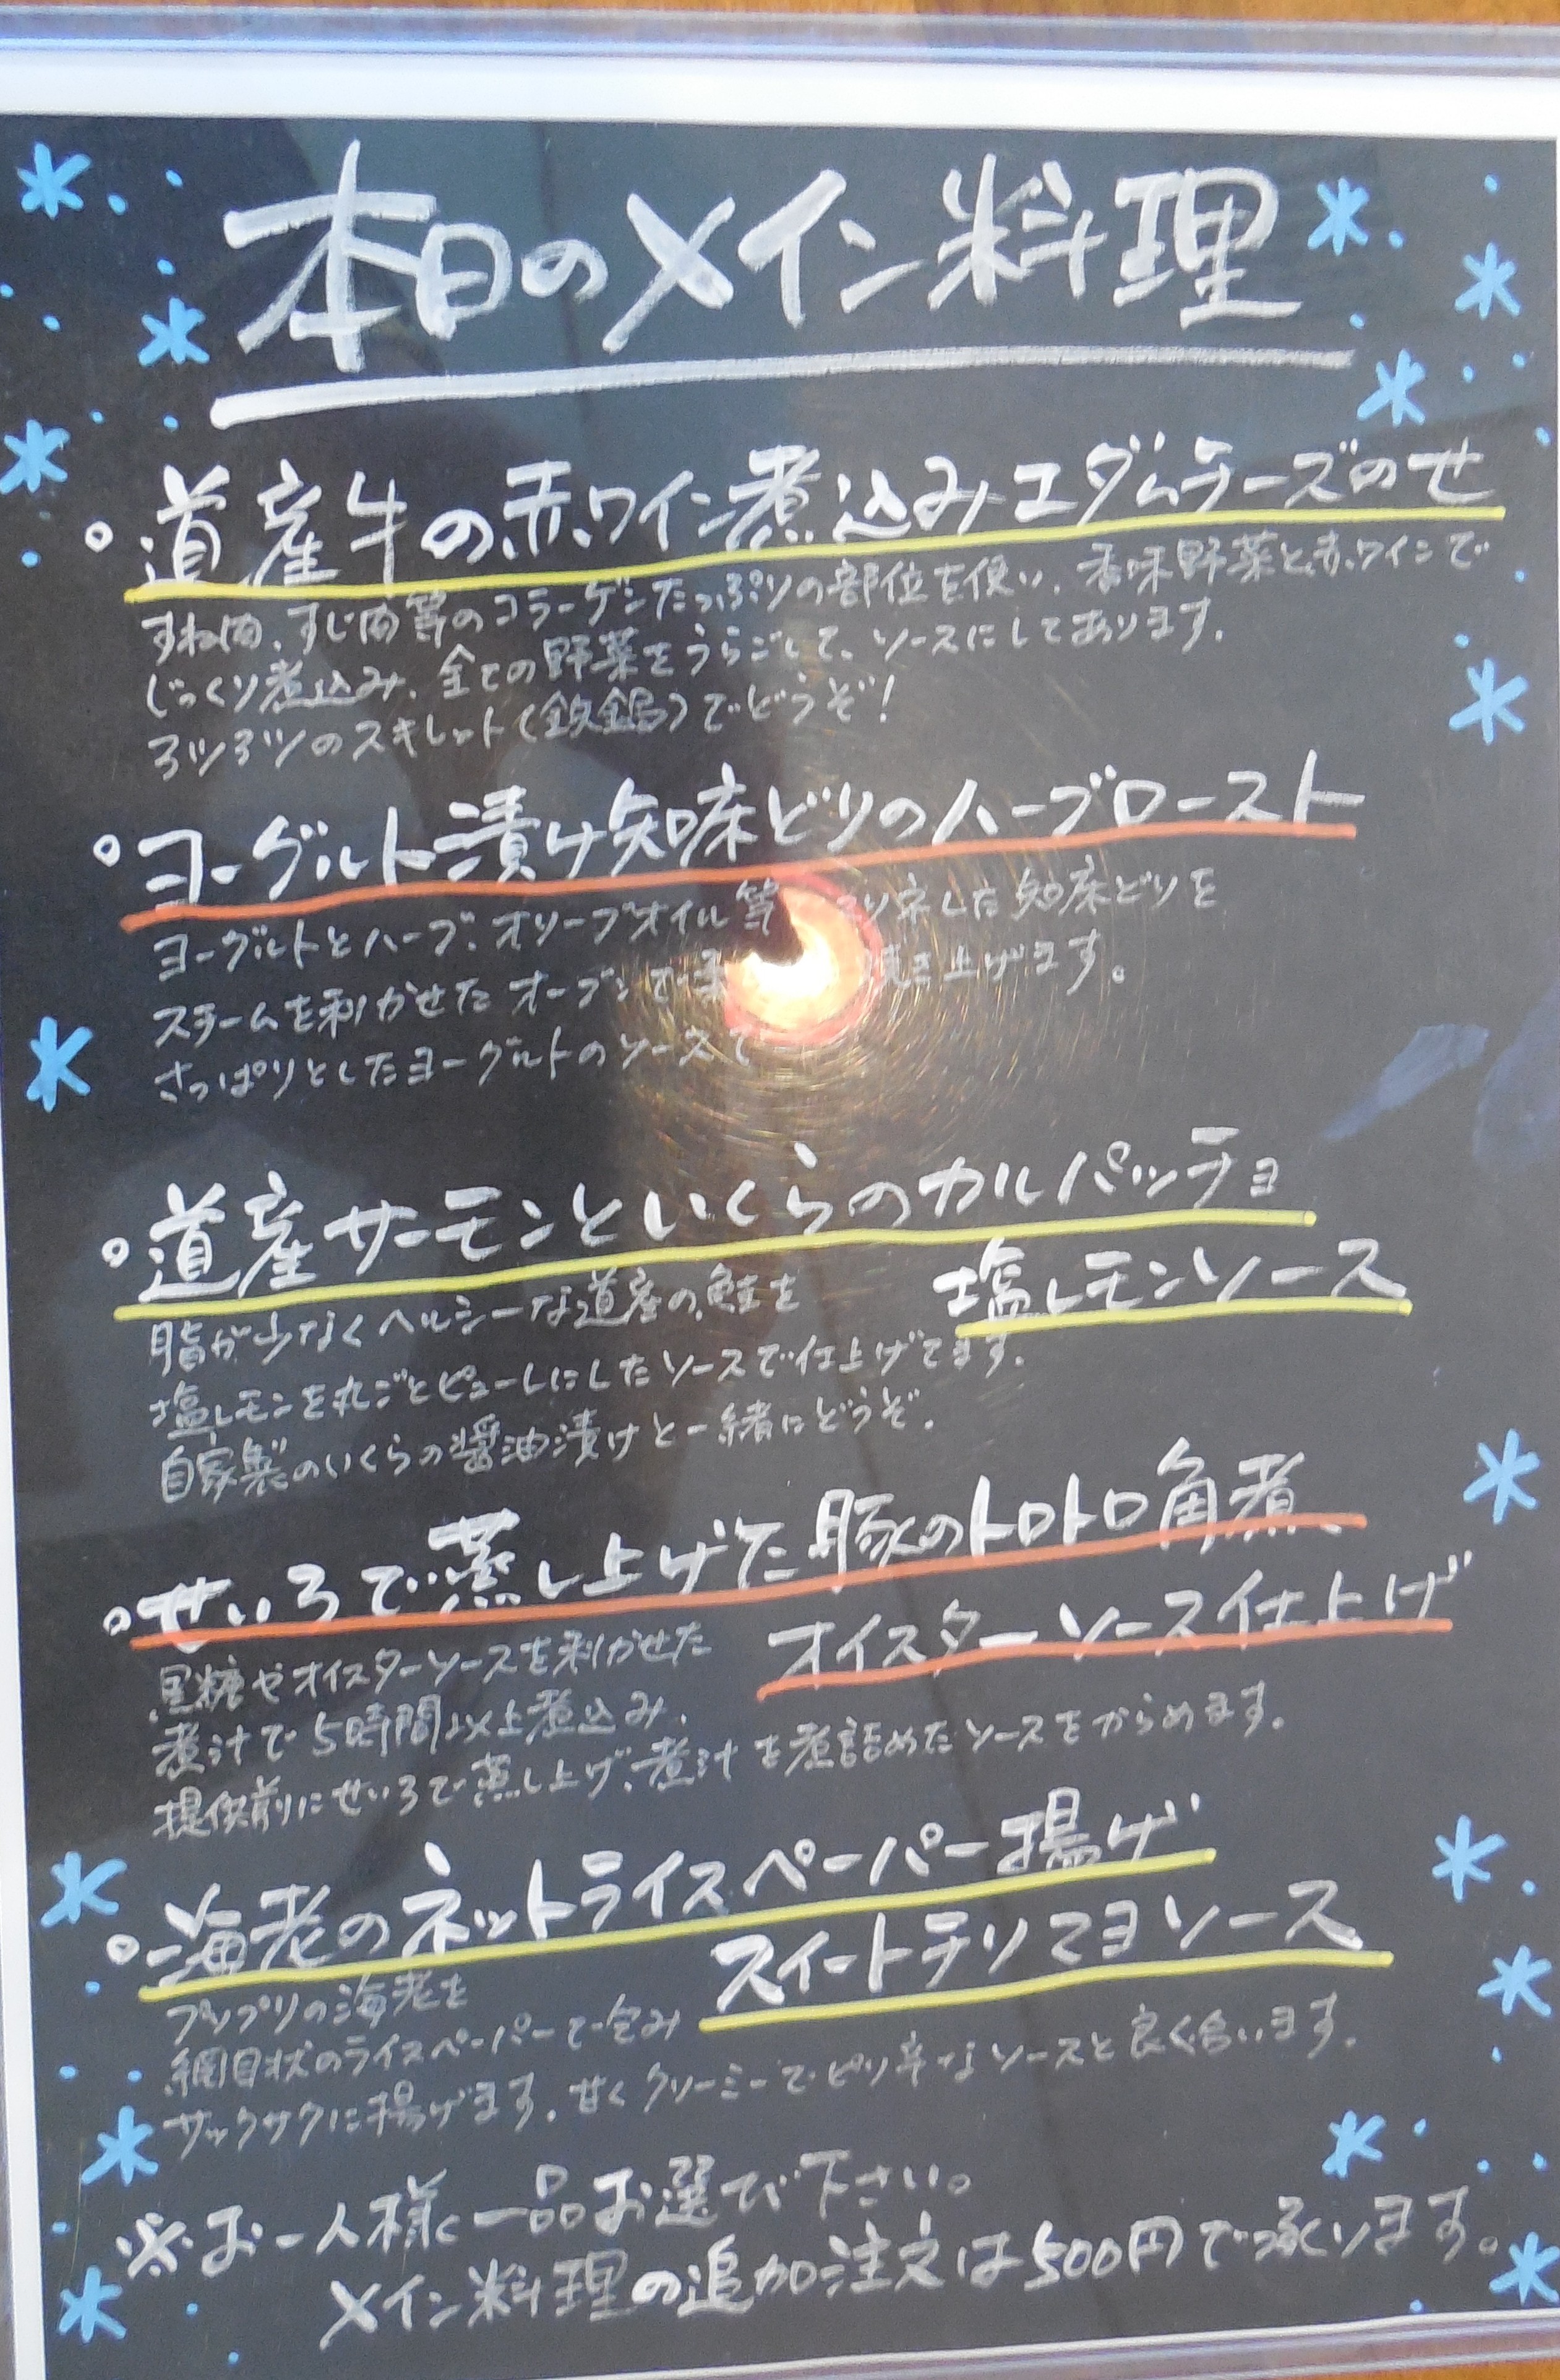 本日のメイン料理
道産牛の赤ワイン煮込みエダムチーズのせ
すね肉、すじ肉等のコラーゲンたっぷりの部位を使い、香味野菜と赤ワインで
じっくり煮込み、全ての野菜をうらごして、ソースにしてあります。
アツアツのスキレット(鉄鍋)でどうぞ!
ヨーグルト漬け知床どりのハーブロースト
ヨーグルトとハーブ、オリーブオイル等 り 知床どりを
スチームを利かせたオーブンで 焼き上げます。
さっぱりとしたヨーグルトのソースで
道産サーモンといくらのカルパッチョ
塩レモンソース
脂が少なくヘルシーな道産の鮭を
塩レモンを丸ごとピューレにしたソースで仕上げてます。
自家製のいくらの醤油漬けと一緒にどうぞ。
せいろで蒸し上げた豚のトロトロ角煮、
オイスターソース仕上げ
黒糖やオイスターソースを利かせた
煮汁で5時間以上煮込み、
提供前にせいろで蒸し上げ、煮汁を煮詰めたソースをからめます。
海老のネットライスペーパー揚げ
スイートチリマヨソース
プリプリの海老を
網目状のライスペーパーで包み
サックサクに揚げます。甘くクリーミーでピリ辛なソースと良く合います。
※お一人様一品お選び下さい。
メイン料理の追加注文は500円で承ります。